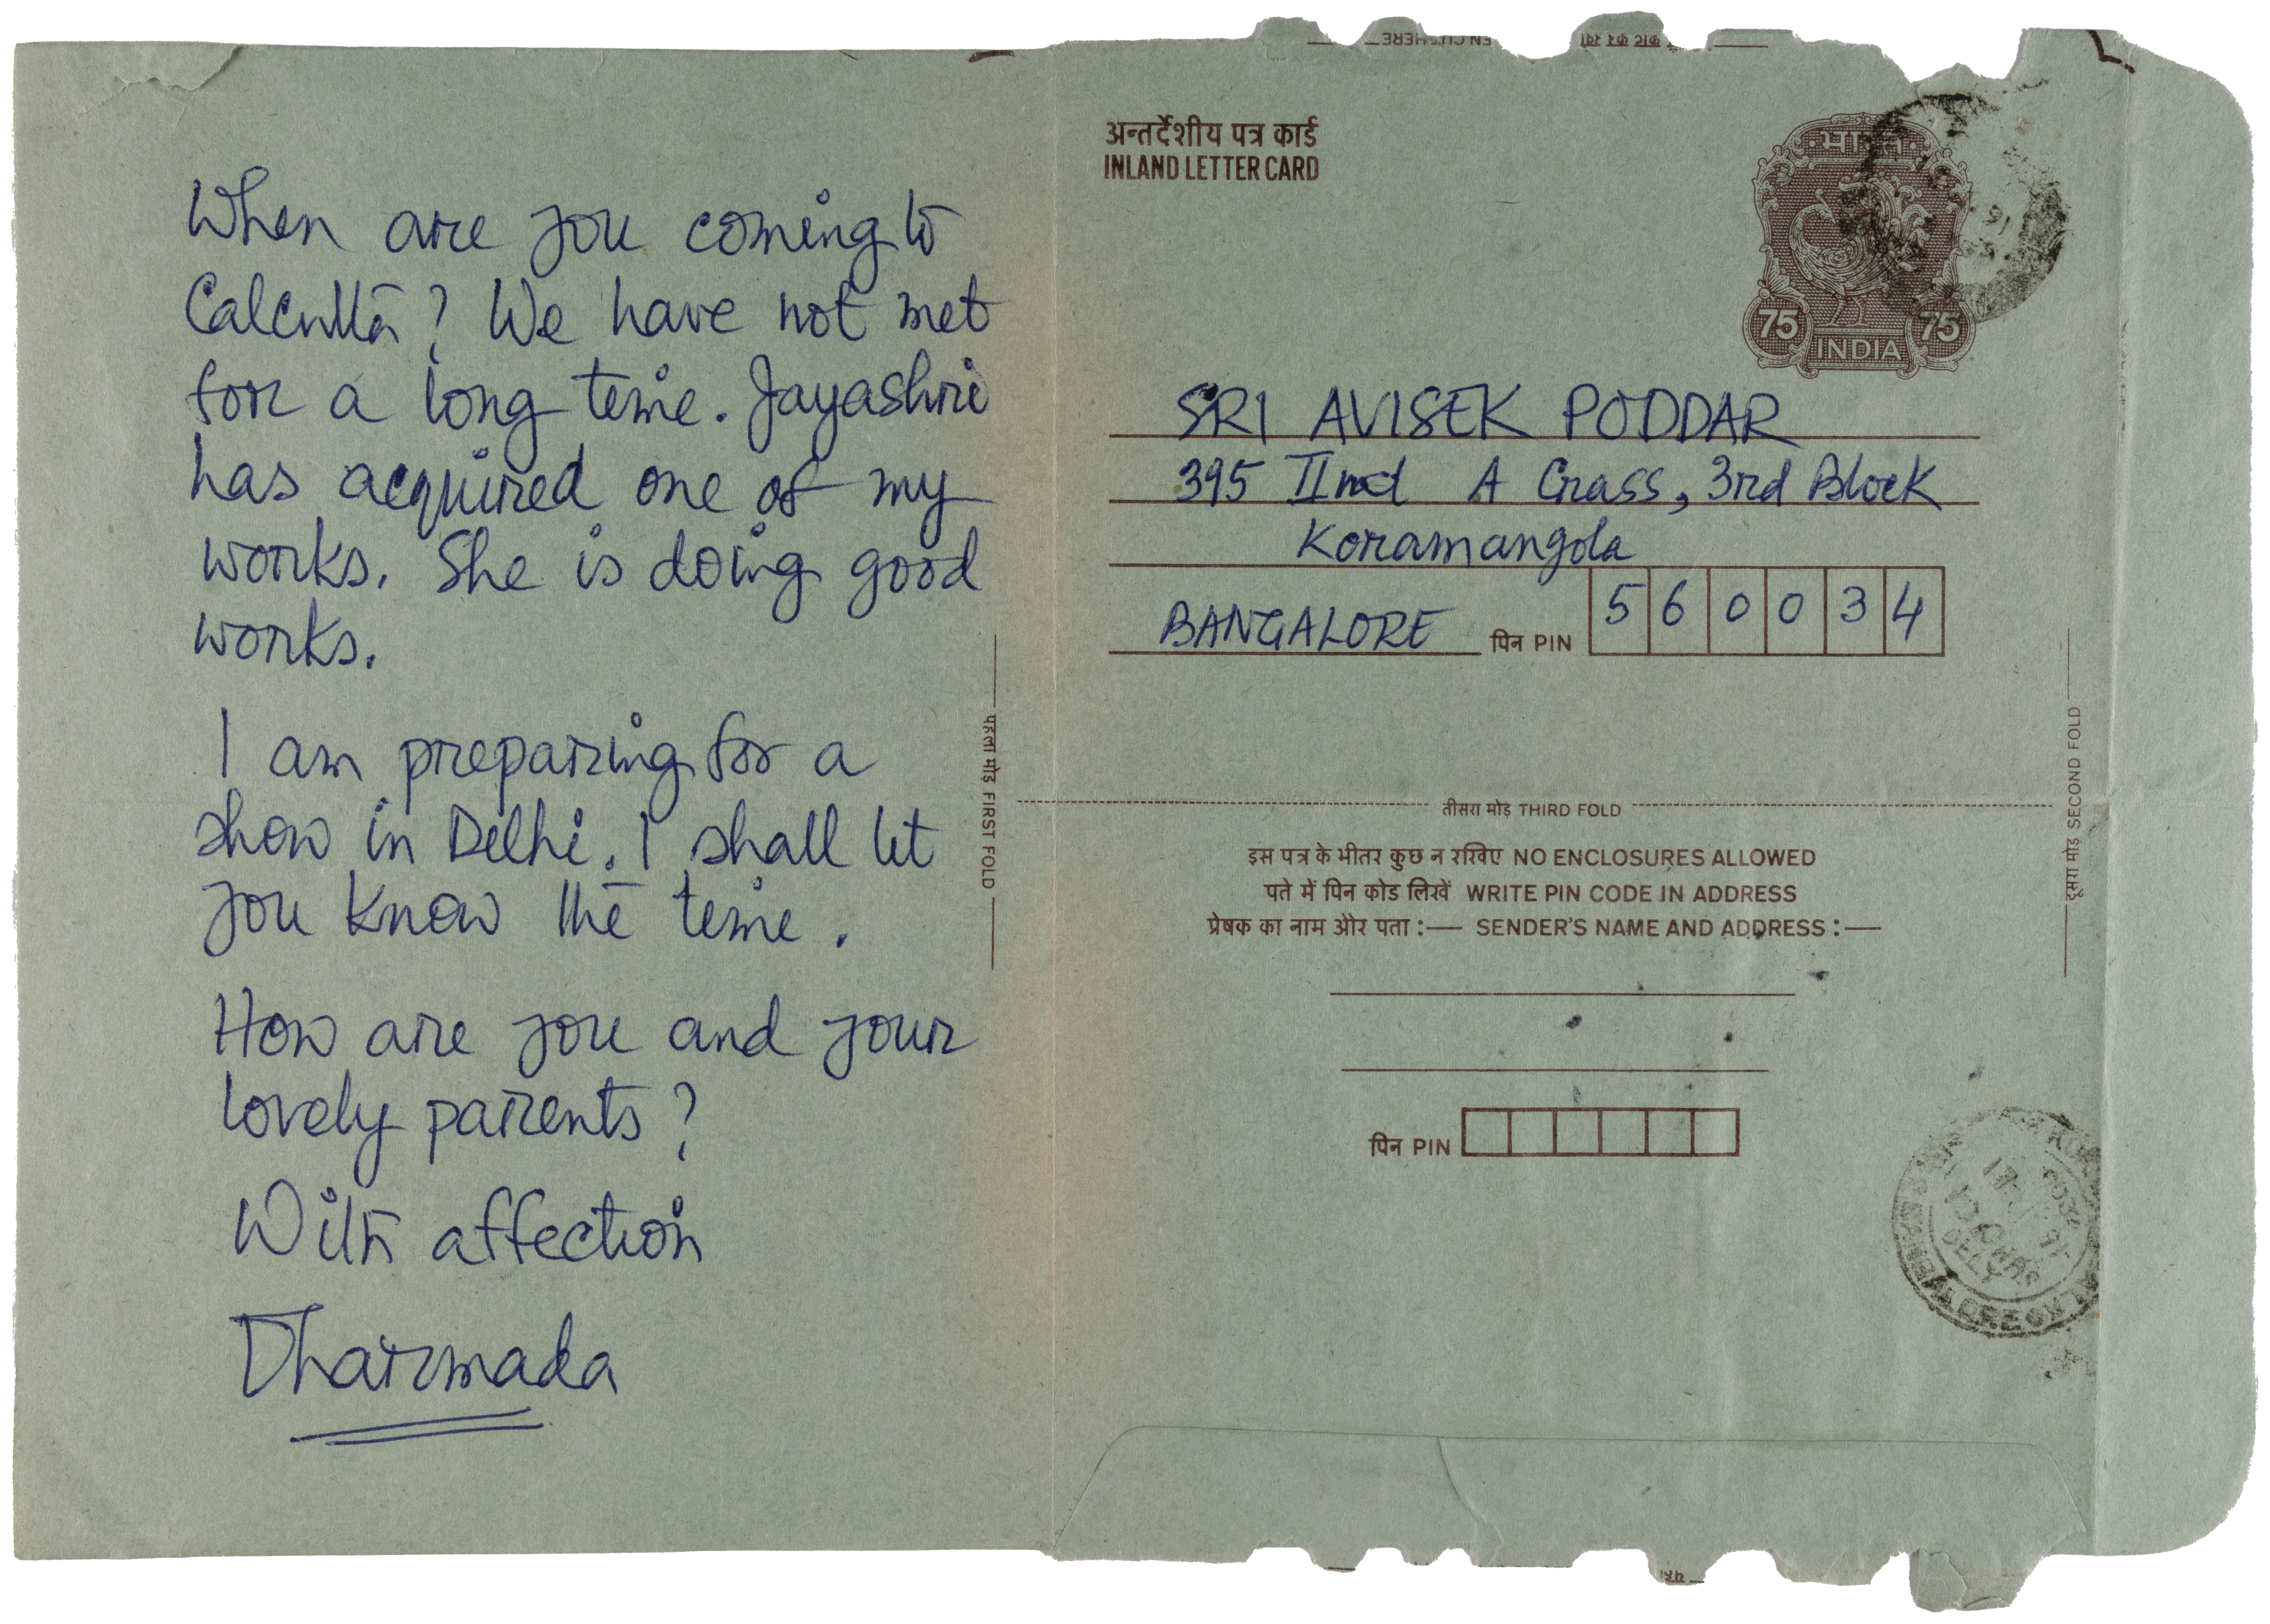 When are you coming to
Calcutta? We have not met
for a long time. Jayashri
has acquired one of my
works. She is doing good
works.
I am preparing for a
show in Delhi. I shall let
you know the time.
How are you and your
lovely parents?
With affection
Dharmada
पहला मोड़ FIRST FOLD
अन्तर्देशीय पत्र कार्ड
INLAND LETTER CARD
भारत
75 75
INDIA
SRI AVISEK PODDAR
395 IInd A Crass, 3rd Block
Koramangola
BANGALORE पिन PIN 560034
तीसरा मोड़ THIRD FOLD
दूसरा मोड़ SECOND FOLD
इस पत्र के भीतर कुछ न रखिए NO ENCLOSURES ALLOWED
पते में पिन कोड लिखें WRITE PIN CODE IN ADDRESS
प्रेषक का नाम और पता :— SENDER'S NAME AND ADDRESS :—
पिन PIN